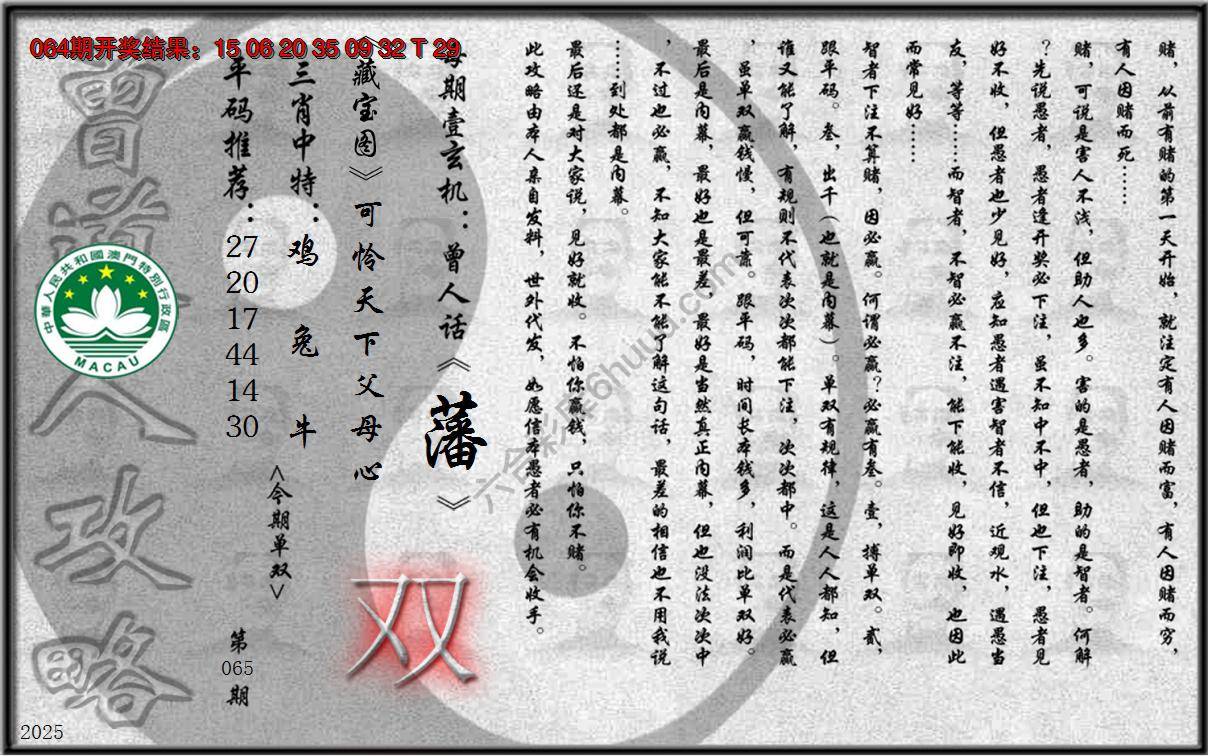 064期开奖结果：15 06 20 35 09 32 T 29
赌，从前有赌的第一天开始，就注定有人因赌而富，有人因赌而穷，
有人因赌而死……
赌，可说是害人不浅，但助人也多。害的是愚者，助的是智者。何解
？先说愚者，愚者逢开奖必下注，虽不知中不中，但也下注，愚者见
好不收，但愚者也少见好，应知愚者遇害智者不信，近观水，遇愚当
友，等等……而智者，不智必赢不注，能下能收，见好即收，也因此
而常见好……
智者下注不算赌，因必赢。何谓必赢？必赢有叁。壹，搏单双。贰，
跟平码。叁，出千（也就是内幕）。单双有规律，这是人人都知，但
谁又能了解，有规则不代表次次都能下注，次次都中。而是代表必赢
，虽单双赢钱慢，但可靠。跟平码，时间长本钱多，利润比单双好。
最后是内幕，最好也是最差，最好是当然真正内幕，但也没法次次中
，不过也必赢，不知大家能不能了解这句话，最差的相信也不用我说
……到处都是内幕。
最后还是对大家说，见好就收。不怕你赢钱，只怕你不赌。
此攻略由本人亲自发料，世外代发，如愿信本愚者必有机会收手。
每期壹玄机：曾人话《藩》
《藏宝图》可怜天下父母心
双
三肖中特：鸡 兔 牛
<今期单双>
平码推荐：27 20 17 44 14 30
第065期
曾道人攻略
中華人民共和國澳門特別行政區
MACAU
2025
六合彩库6huuu.com